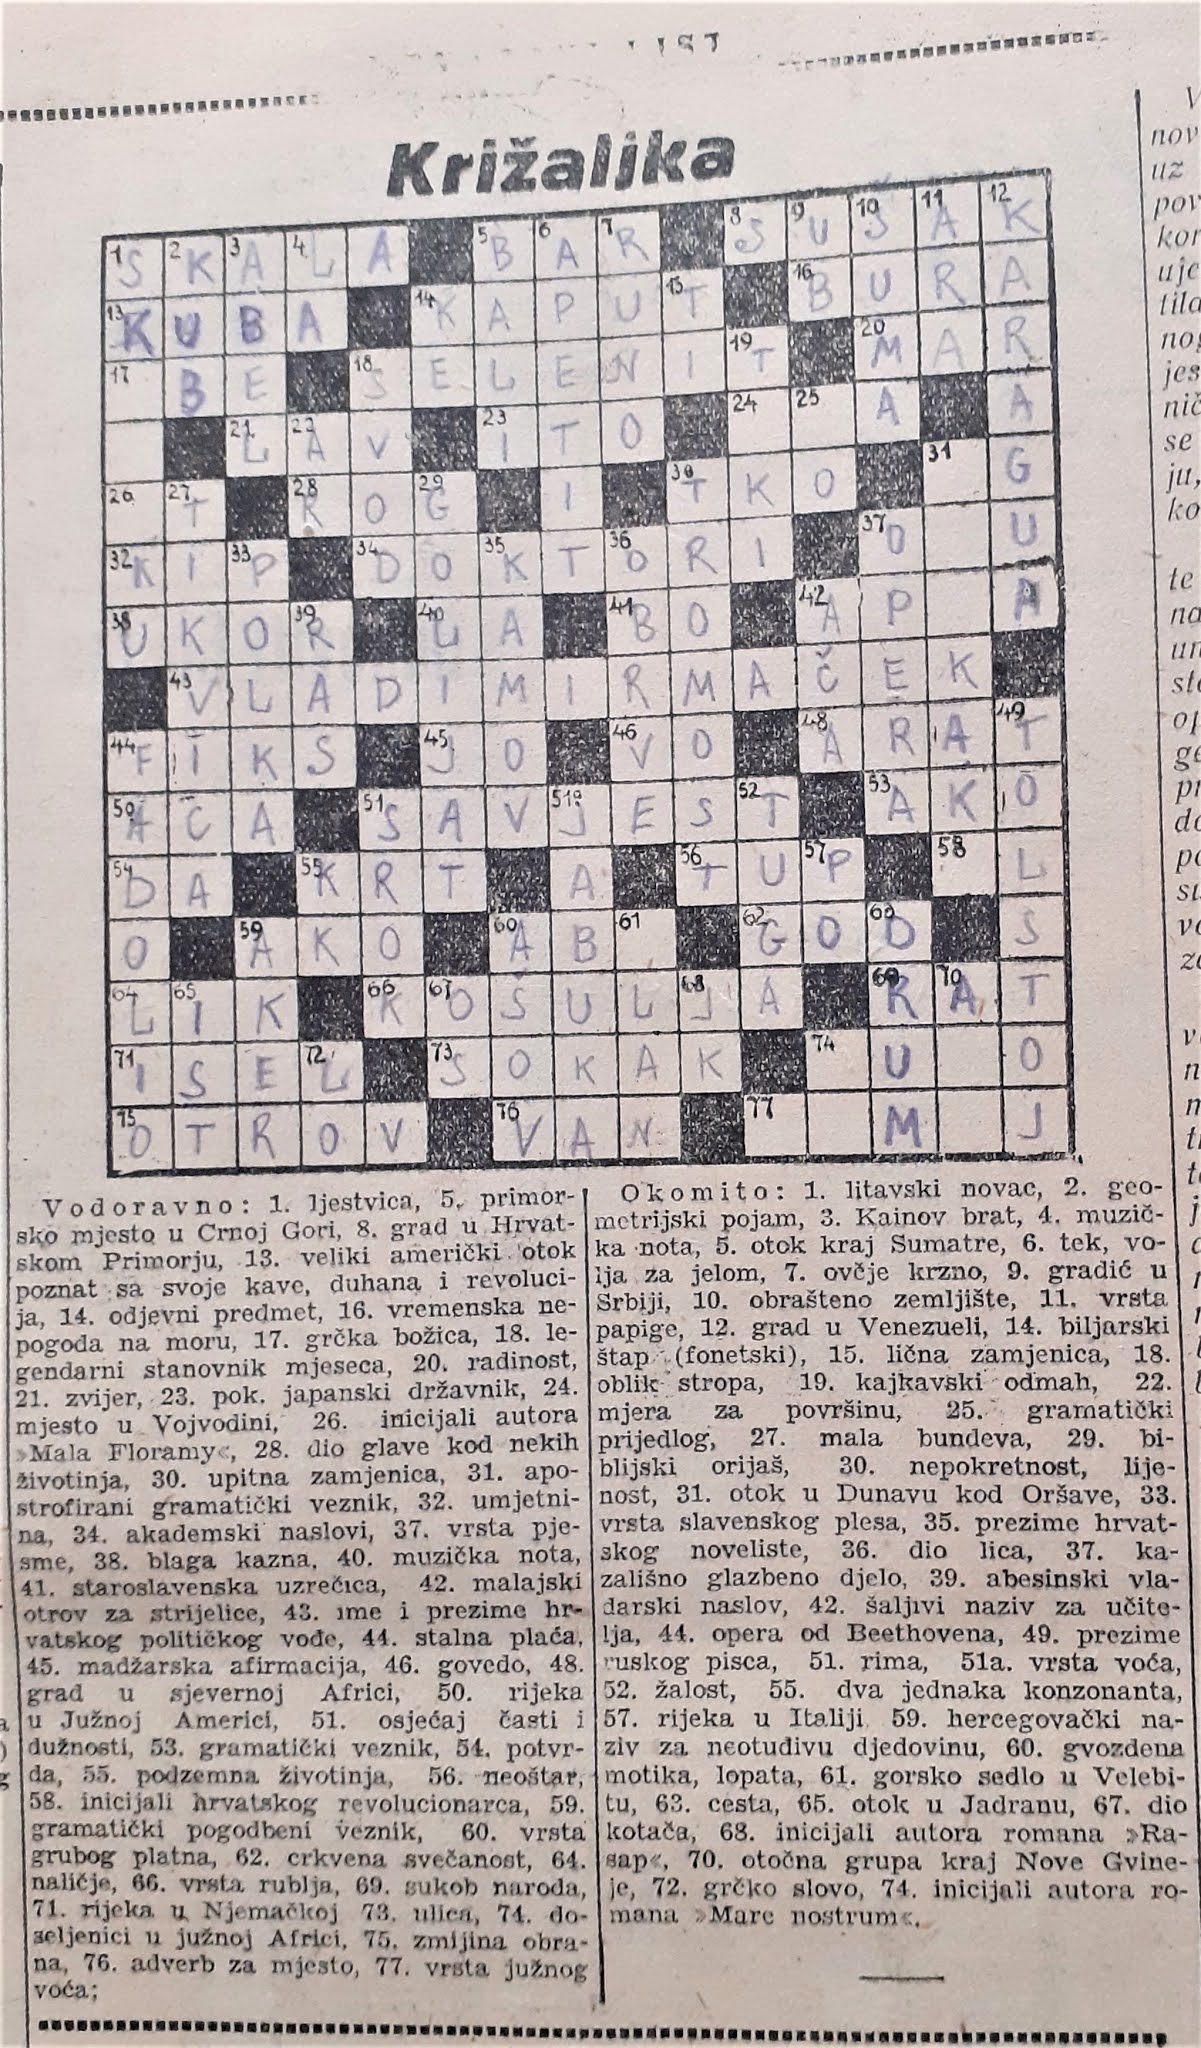 LIST
Križaljka
1 S 2 K 3 A 4 L A 5 B 6 A 7 R 8 S 9 U 10 S 11 A 12 K
13 K U B A 14 K A P U 15 T 16 B U R A A
17 B E 18 S E L E N I 19 T 20 M A R
21 L 22 A V 23 I T O 24 25 A A
26 27 T 28 R O 29 G I 30 T K O 31 G
32 K I 33 P 34 D O 35 K T 36 O R I 37 O U
38 U K O 39 R 40 L A 41 B O 42 A P A
43 V L A D I M I R M A Č E K
44 F I K S 45 J O 46 V O 48 A R A 49 T
50 A C A 51 S A V 51a J E S 52 T 53 A K O
54 D A 55 K R T A 56 T U 57 P 58 L
O 59 A K O 60 A B 61 62 G O 63 D S
64 L 65 I K 66 K 67 O Š U L 68 J A 69 R 70 A T
71 I S E 72 L 73 S O K A K 74 U O
75 O T R O V 76 V A N 77 M J
Vodoravno: 1. ljestvica, 5. primor-
sko mjesto u Crnoj Gori, 8. grad u Hrvat-
skom Primorju, 13. veliki američki otok
poznat sa svoje kave, duhana i revoluci-
ja, 14. odjevni predmet, 16. vremenska ne-
pogoda na moru, 17. grčka božica, 18. le-
gendarni stanovnik mjeseca, 20. radinost,
21. zvijer, 23. pok. japanski državnik, 24.
mjesto u Vojvodini, 26. inicijali autora
»Mala Floramy«, 28. dio glave kod nekih
životinja, 30. upitna zamjenica, 31. apo-
strofirani gramatički veznik, 32. umjetni-
na, 34. akademski naslovi, 37. vrsta pje-
sme, 38. blaga kazna, 40. muzička nota,
41. staroslavenska uzrečica, 42. malajski
otrov za strijelice, 43. ime i prezime hr-
vatskog političkog vođe, 44. stalna plaća,
45. madžarska afirmacija, 46. govedo, 48.
grad u sjevernoj Africi, 50. rijeka
u Južnoj Americi, 51. osjećaj časti i
dužnosti, 53. gramatički veznik, 54. potvr-
da, 55. podzemna životinja, 56. neoštar,
58. inicijali hrvatskog revolucionarca, 59.
gramatički pogodbeni veznik, 60. vrsta
grubog platna, 62. crkvena svečanost, 64.
naličje, 66. vrsta rublja, 69. sukob naroda,
71. rijeka u Njemačkoj 73. ulica, 74. do-
seljenici u južnoj Africi, 75. zmijina obra-
na, 76. adverb za mjesto, 77. vrsta južnog
voća;
Okomito: 1. litavski novac, 2. geo-
metrijski pojam, 3. Kainov brat, 4. muzič-
ka nota, 5. otok kraj Sumatre, 6. tek, vo-
lja za jelom, 7. ovčje krzno, 9. gradić u
Srbiji, 10. obrašteno zemljište, 11. vrsta
papige, 12. grad u Venezueli, 14. biljarski
štap (fonetski), 15. lična zamjenica, 18.
oblik stropa, 19. kajkavski odmah, 22.
mjera za površinu, 25. gramatički
prijedlog, 27. mala bundeva, 29. bi-
blijski orijaš, 30. nepokretnost, lije-
nost, 31. otok u Dunavu kod Oršave, 33.
vrsta slavenskog plesa, 35. prezime hrvat-
skog noveliste, 36. dio lica, 37. ka-
zališno glazbeno djelo, 39. abesinski vla-
darski naslov, 42. šaljivi naziv za učite-
lja, 44. opera od Beethovena, 49. prezime
ruskog pisca, 51. rima, 51a. vrsta voća,
52. žalost, 55. dva jednaka konzonanta,
57. rijeka u Italiji 59. hercegovački na-
ziv za neotuđivu djedovinu, 60. gvozdena
motika, lopata, 61. gorsko sedlo u Velebi-
tu, 63. cesta, 65. otok u Jadranu, 67. dio
kotača, 68. inicijali autora romana »Ra-
sap«, 70. otočna grupa kraj Nove Gvine-
je, 72. grčko slovo, 74. inicijali autora ro-
mana »Mare nostrum«.